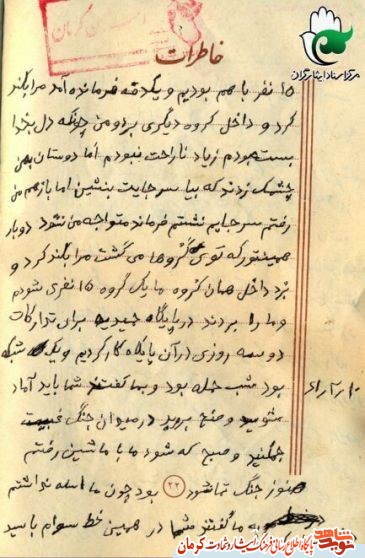 مرکز اسناد ایثارگران
خاطرات
۱۵ نفر با هم بودیم و یکدفعه فرمانده آمد مرا بلند
کرد و داخل گروه دیگری برد و من چونکه دل بخدا
بسته بودم زیاد ناراحت نبودم اما دوستان بمن
چشمک زدند که بیا سر جایت بنشین اما باز هم من
رفتم سر جایم نشستم فرمانده متوجه من نشود دوباره
همینطور که توی گروها می گشت مرا بلند کرد و
برد داخل همان گروه ما یک گروه ۱۵ نفری شدیم
و ما را بردند در پایگاه جدید برای تدارکات
دو سه روزی در آن پایگاه کار کردیم و یک شبکه
بود شب حمله بود و بما گفتند شما باید آماده
بشوید و صبح بروید در میدان جنگ غنیمت
جمع کنید و صبح که شود ما با ماشین رفتیم
هنوز جنگ تمام نشده (۲۲) بود چون ما اسلحه نداشتیم
به ما گفتند شما در همین خط سوم باسید
پایگاه اطلاع رسانی فرهنگ ایثار و شهادت کرمان
نوید شاهد